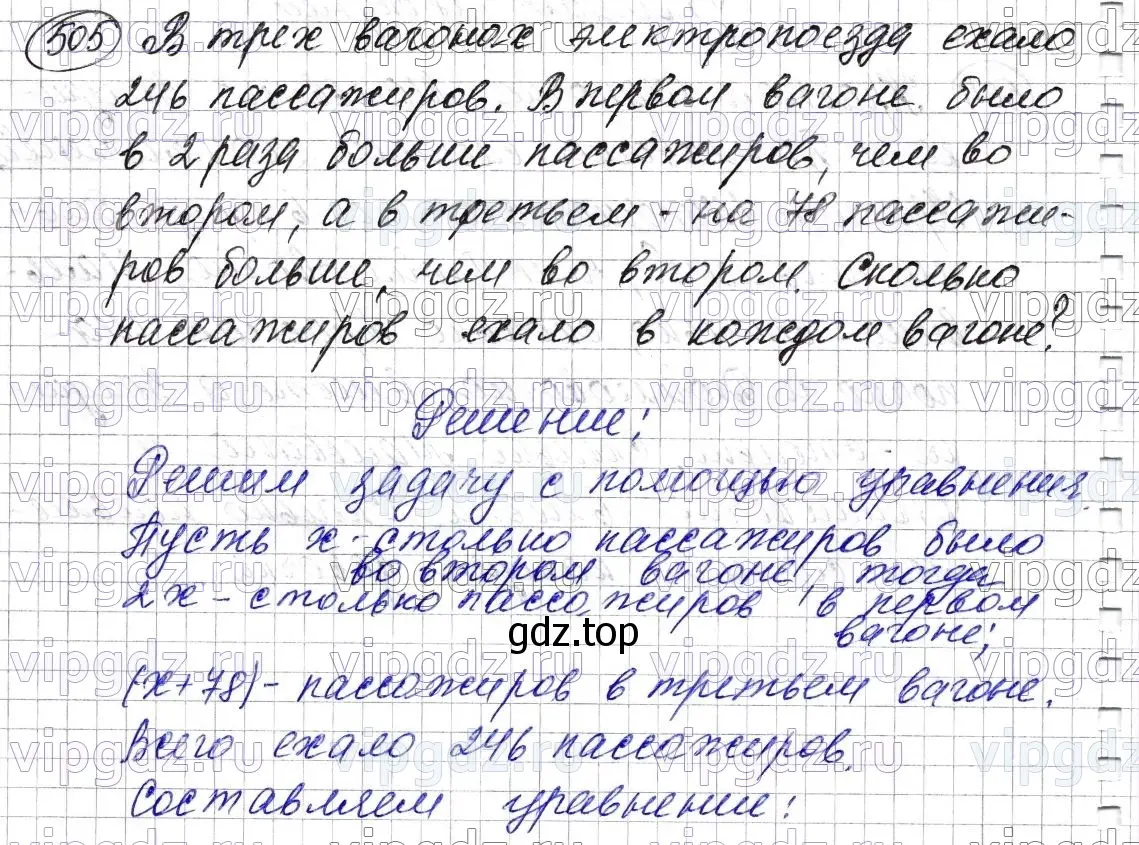 505 В трех вагонах электропоезда ехало
246 пассажиров. В первом вагоне было
в 2 раза больше пассажиров, чем во
втором, а в третьем - на 78 пассажи-
ров больше, чем во втором. Сколько
пассажиров ехало в каждом вагоне?
Решение:
Решим задачу с помощью уравнения.
Пусть x - столько пассажиров было
во втором вагоне, тогда
2x - столько пассажиров в первом
вагоне;
gdz.top
(x+78) - пассажиров в третьем вагоне.
Всего ехало 246 пассажиров.
Составляем уравнение: